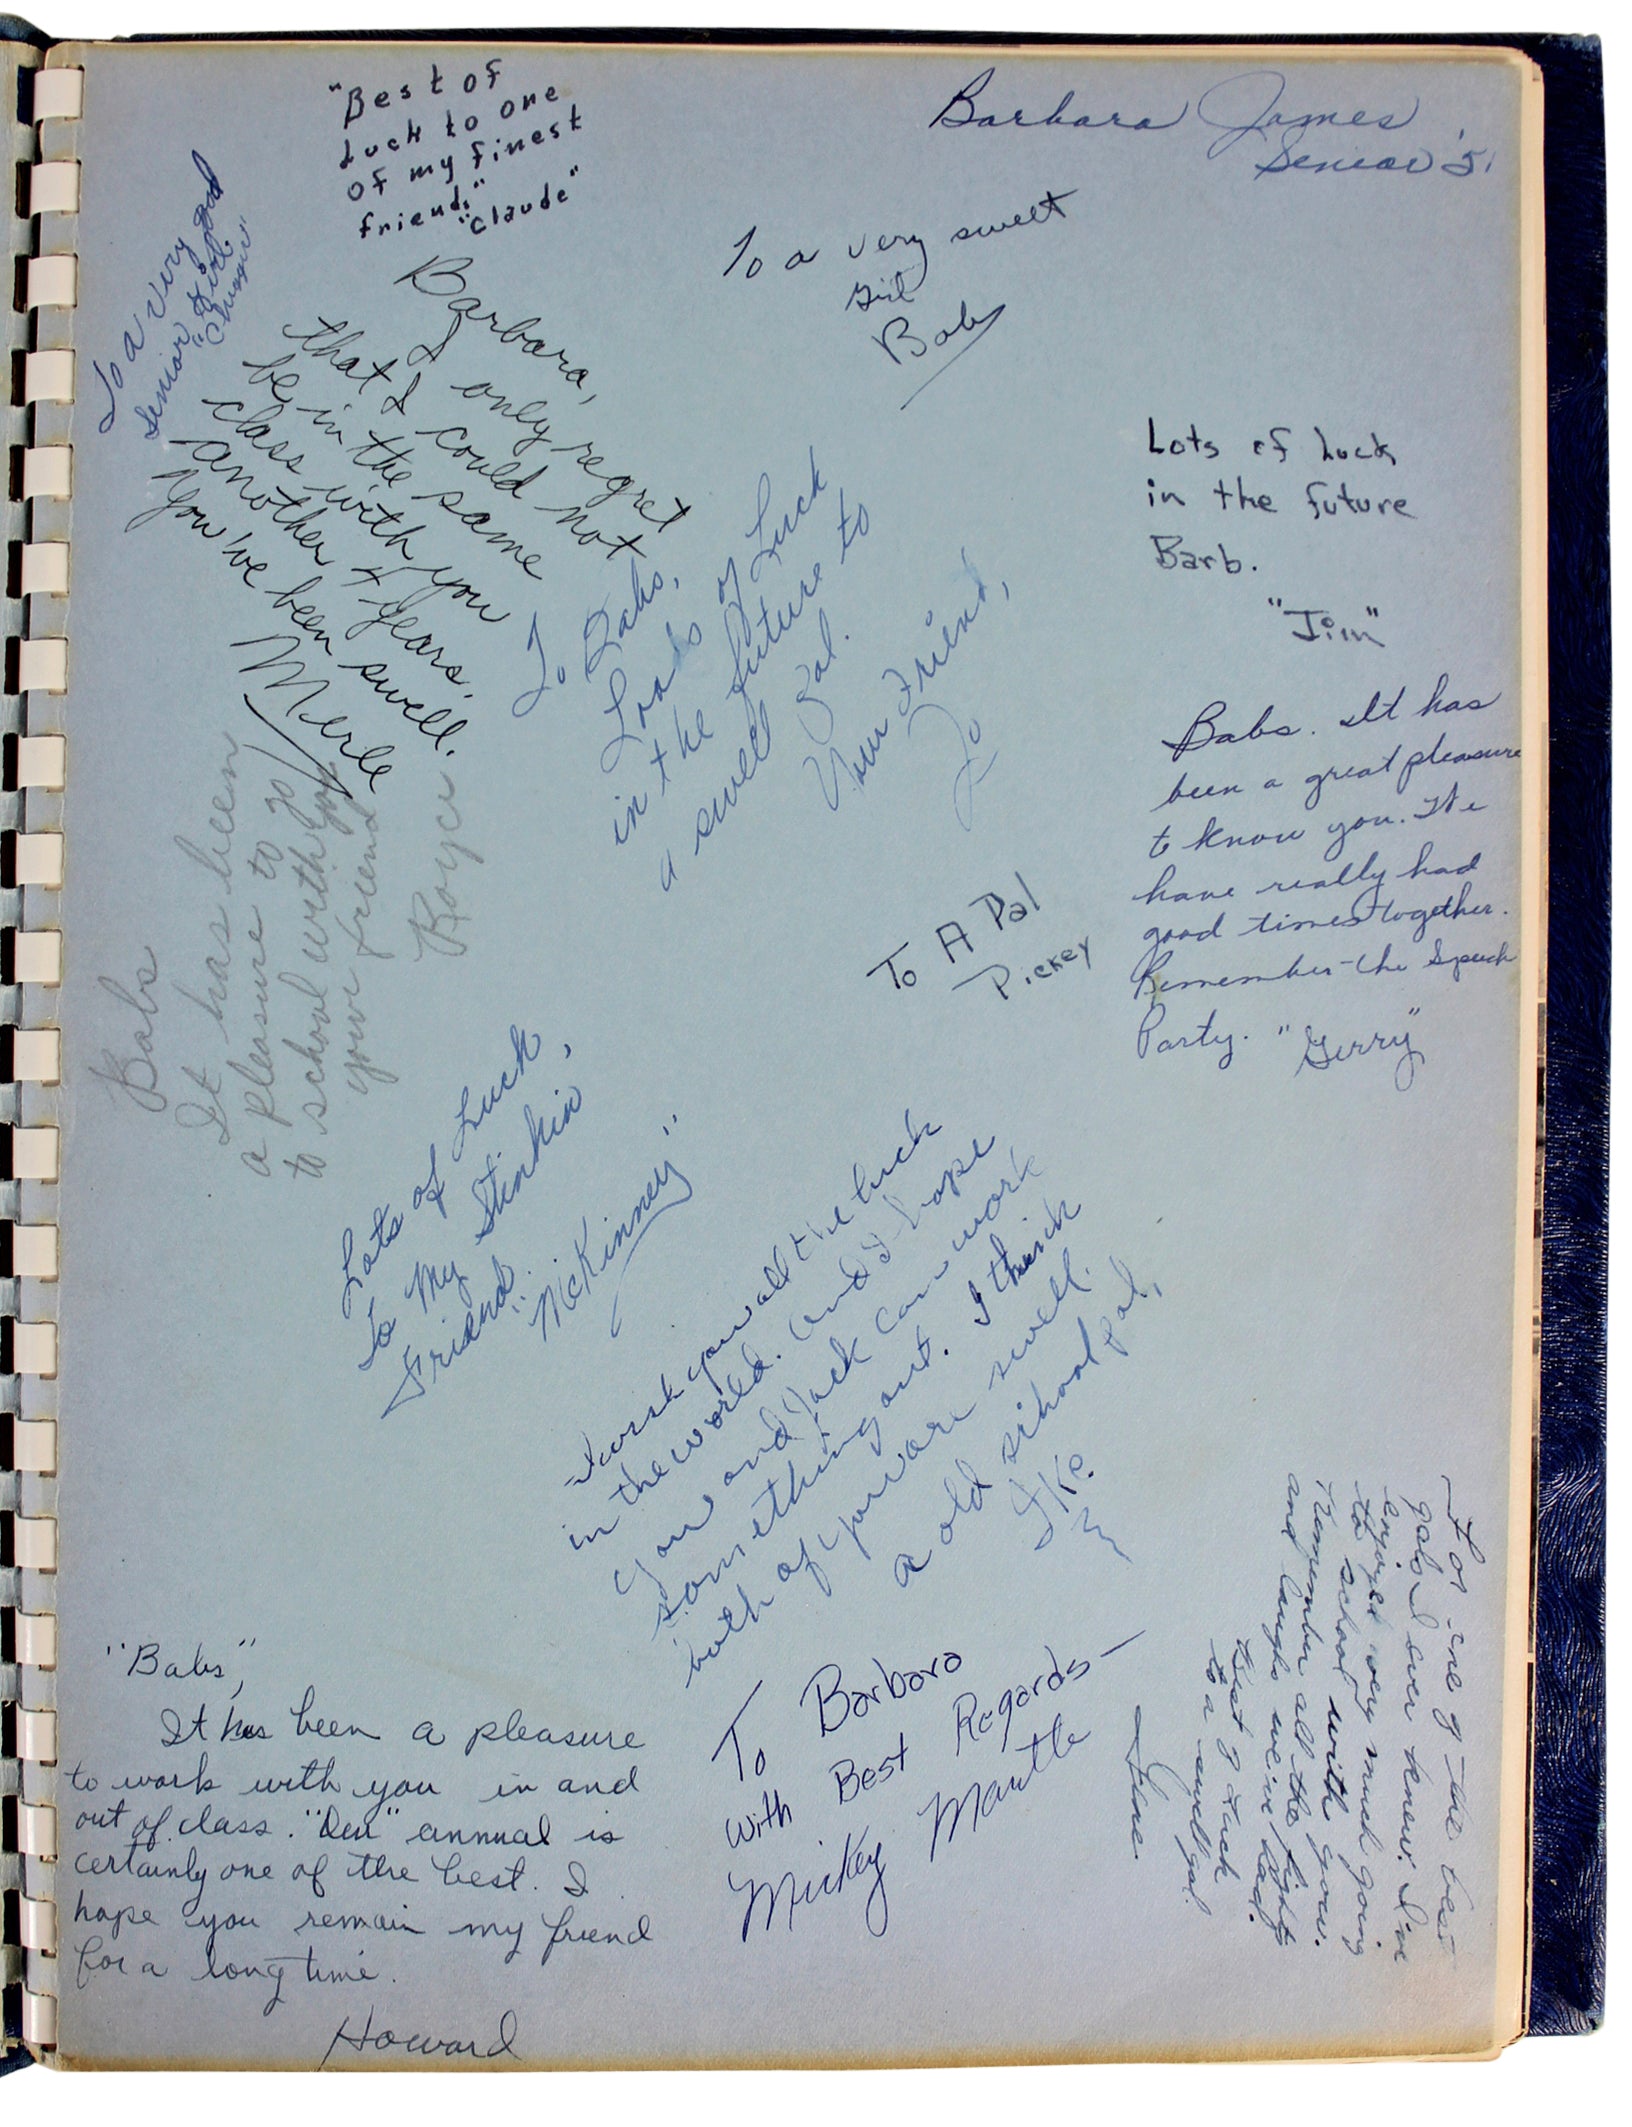 "Best of
Luck to one
of my finest
friend."
"Claude"
Barbara James
Senior '51
To a very good
Senior Girl.
To a very sweet
girl
Bob
Barbara,
I only regret
that I could not
be in the same
class with you
another 4 years.
You've been swell.
Merle
To Babs,
Loads of Luck
in the future to
a swell gal.
Your Friend,
Jo
Lots of Luck
in the future
Barb.
"Jim"
Babs. It has
been a great pleasure
to know you. We
have really had
good times together.
Remember the Speech
Party. "Gerry"
Babs
It has been
a pleasure to go
to school with you
your friend
Royce
To A Pal
Pickey
Lots of Luck,
To My Stinkin
Friend.
"McKinney"
I wish you all the luck
in the world. and I hope
you and Jack can work
something out. I think
both of you are swell.
a old school pal,
Ike
To one of the best
gals I ever knew. I've
enjoyed very much going
to school with you.
Remember all the fights
and laughs we've had.
Best of Luck
to a swell gal.
June
"Babs",
It has been a pleasure
to work with you in and
out of class. "Our" annual is
certainly one of the best. I
hope you remain my friend
for a long time.
Howard
To Barbara
With Best Regards—
Mickey Mantle